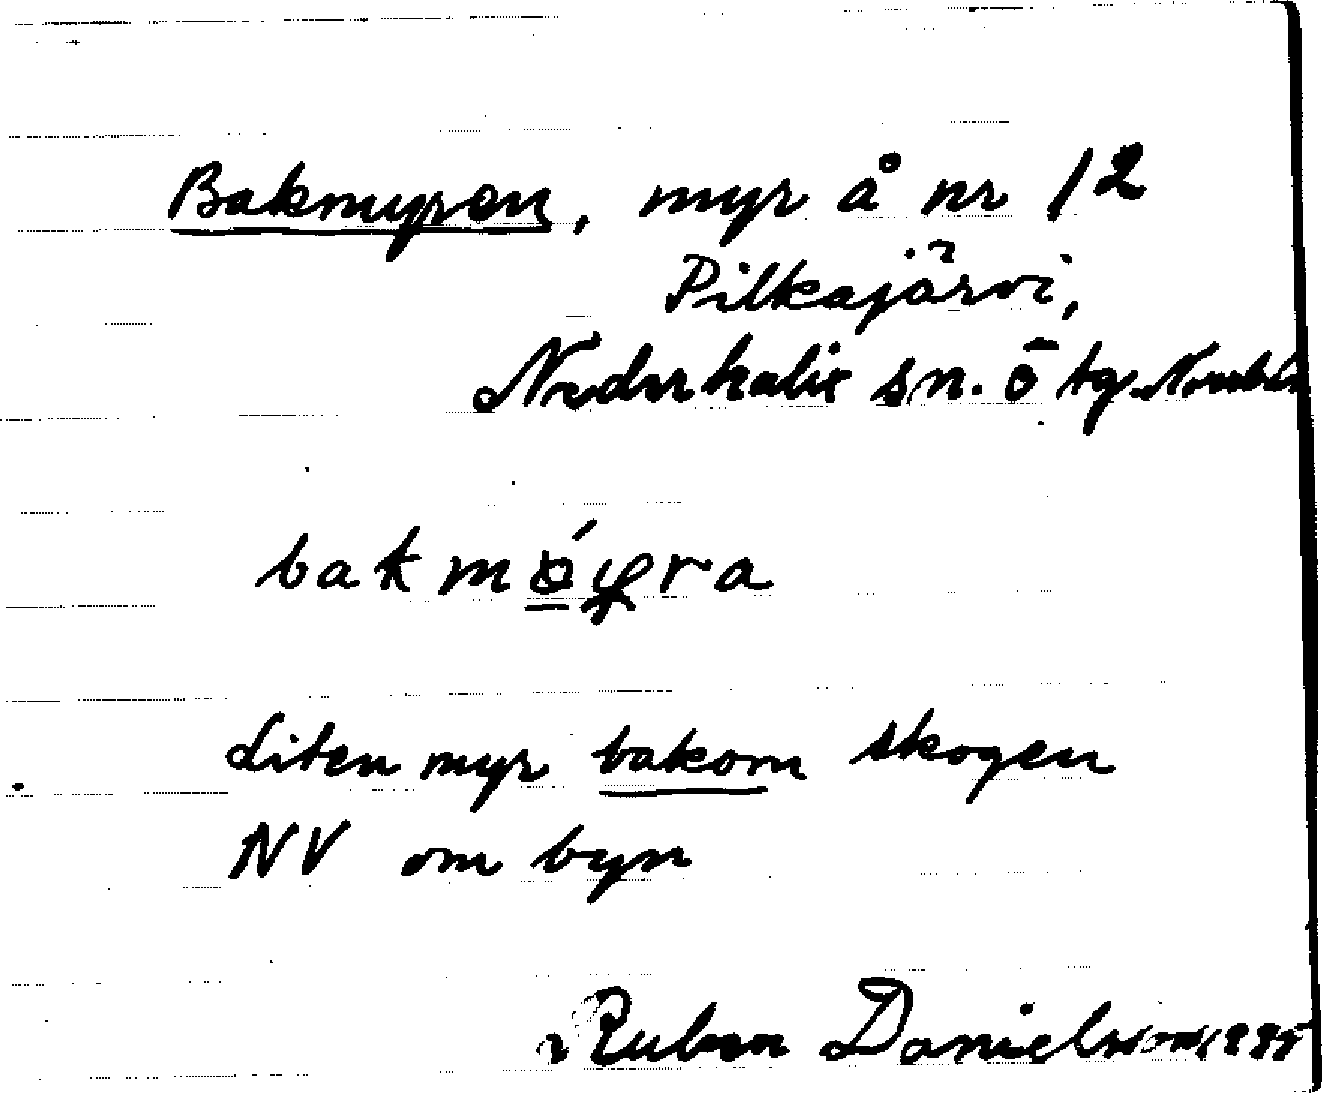 Bakmyren, myr å nr 12
Pilkajärvi,
Nederkalix sn. Ö tg. Norrb
bakmyra
Liten myr bakom skogen
NV om byn
Ruben Danielsson 1935